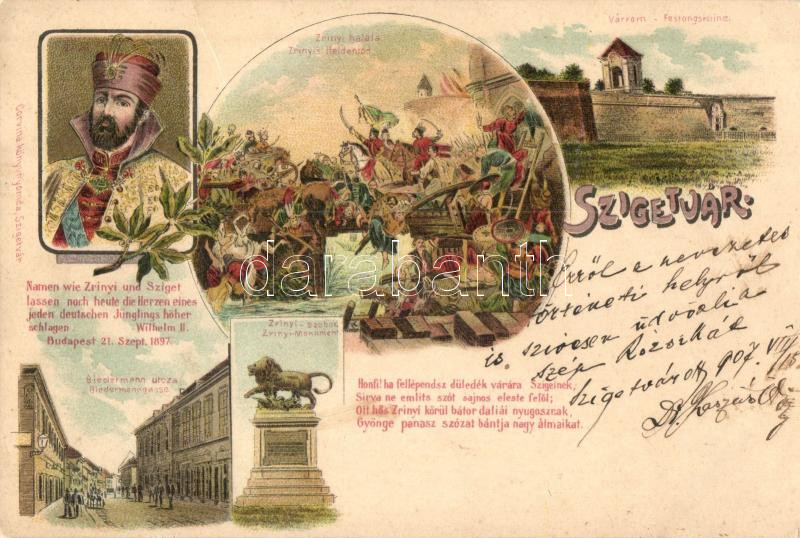 Corvina könyvnyomda, Szigetvár.
Zrinyi halála
Zrinyi's Heldentod
Várrom - Festungsruine.
SZIGETVÁR.
Namen wie Zrinyi und Sziget
lassen noch heute die Herzen eines
jeden deutschen Jünglings höher
schlagen Wilhelm II.
Budapest 21. Szept. 1897.
Zrinyi-szobor
Zrinyi-Monument
Biedermann utcza
Biedermanngasse
Honfi! ha fellépendsz düledék várára Szigetnek,
Sirva ne emlits szót sajnos eleste felől;
Ott hős Zrinyi körül bátor daliái nyugosznak,
Gyönge panasz szózat bántja nagy álmaikat.
Erről a nevezetes
történeti helyről
is szivesen üdvözli
szép
Szigetvárott 907 VIII/15
Dr.
darabanth